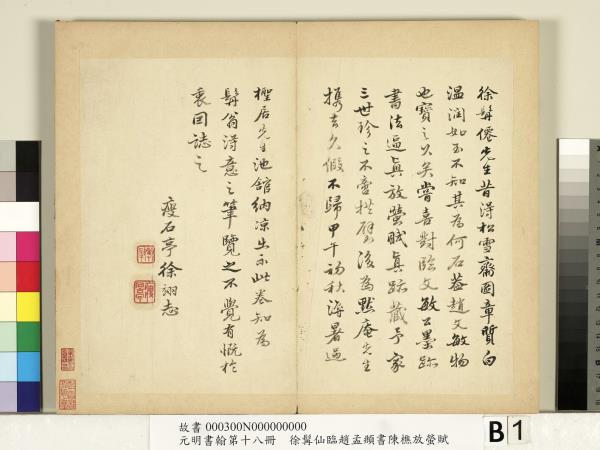 徐髯僊先生昔得松雪齋圖章質白
温潤如玉不知其為何石葢趙文敏物
也寶之久矣嘗喜對臨文敏公墨跡
書法逼真放螢賦真跡藏予家
三世珍之不啻拱璧後為默庵先生
携去久假不歸甲午初秋避暑過
樫居先生池舘納凉出示此卷知為
髯翁得意之筆覽之不覺有慨於
衷因誌之
瘦石亭徐翊志
故書 000300N000000000
元明書翰第十八冊 徐髯仙臨趙孟頫書陳樵放螢賦
B 1